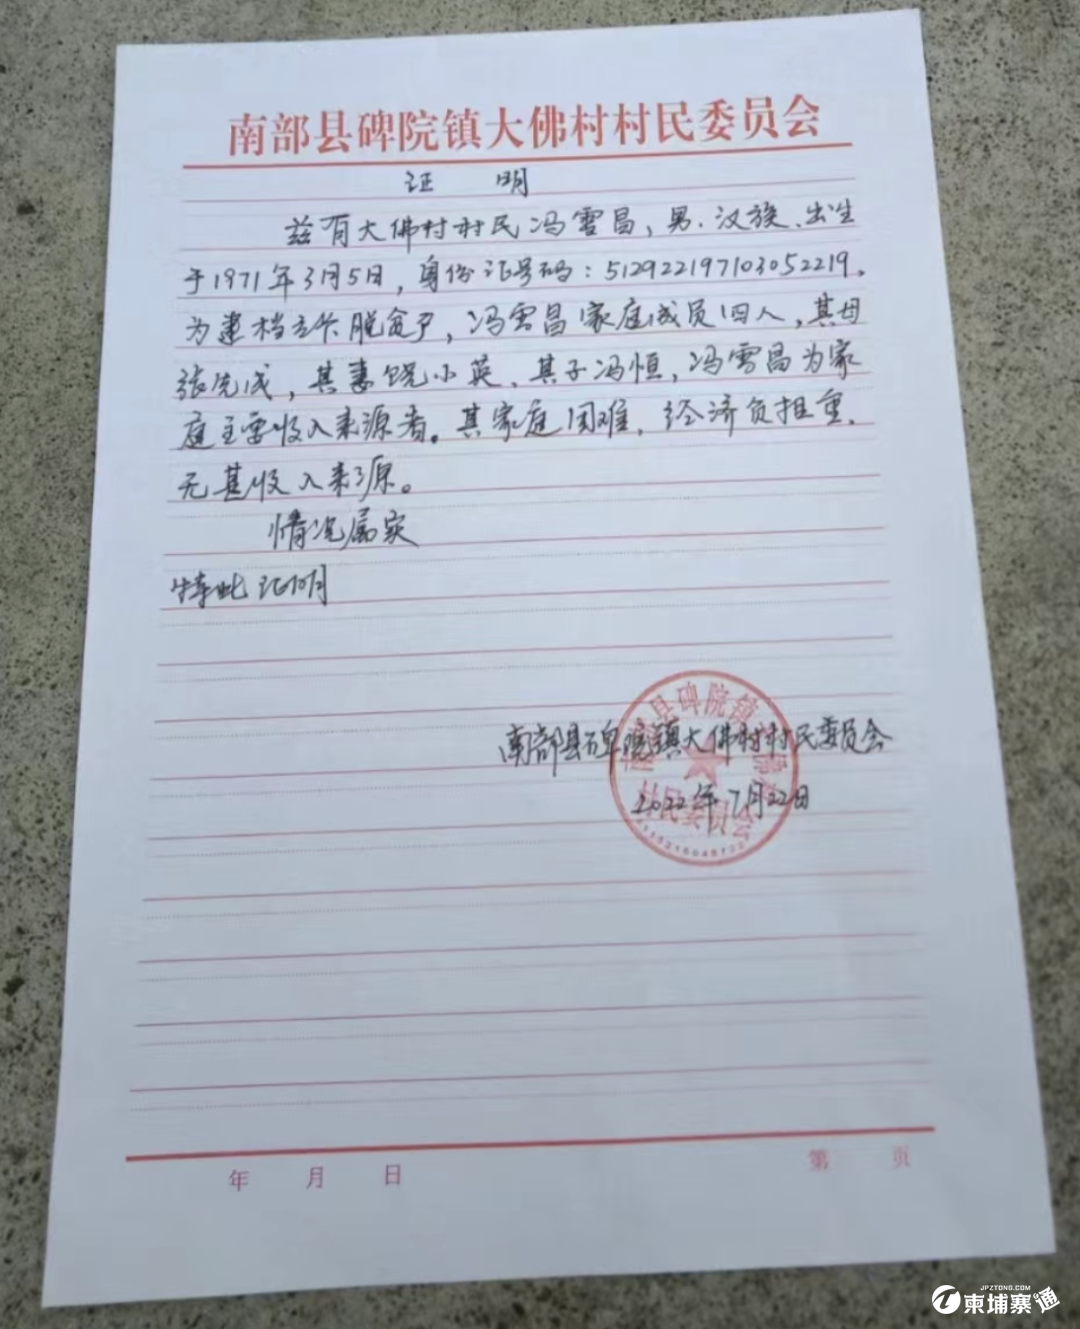 南部县碑院镇大佛村村民委员会
证 明
兹有大佛村村民冯雪昌，男.汉族、出生
于1971年3月5日，身份证号码：512922197103052219.
为建档立卡脱贫户，冯雪昌家庭成员四人，其母
张先成，其妻饶小英，其子冯恒，冯雪昌为家
庭主要收入来源者。其家庭困难，经济负担重.
无甚收入来源。
情况属实
特此证明
南部县碑院镇大佛村村民委员会
2022年7月22日
年 月 日
第 页
JPZTONG.COM
柬埔寨通